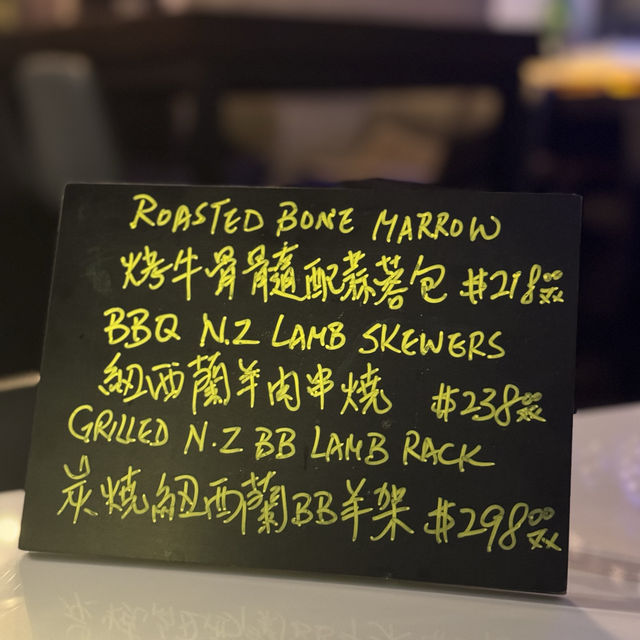 ROASTED BONE MARROW
烤牛骨髓配蒜蓉包 $218.00
BBQ N.Z LAMB SKEWERS
紐西蘭羊肉串燒 $238.00
GRILLED N.Z BB LAMB RACK
炭燒紐西蘭BB羊架 $298.00